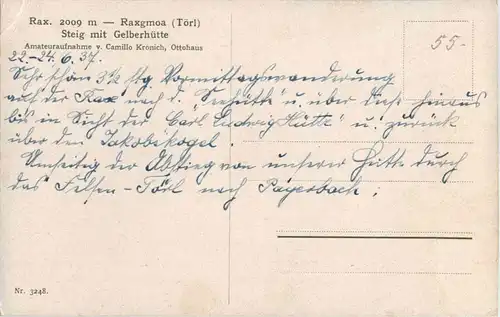 Rax. 2009 m — Raxgmoa (Törl)
Steig mit Gelberhütte
Amateuraufnahme v. Camillo Kronich, Ottohaus
55-
22.-24.6.37.
Sehr schön 3½ stg. Vormittagswanderung
auf der Rax nach d. "Seehütte" u. über diese hinaus
bis in Sicht der "Carl Ludwig Hütte" u. zurück
über den Jakobskogel.
Umseitig der Abstieg von unserer Hütte durch
das Felsen-Törl nach Payerbach.
Nr. 3248.